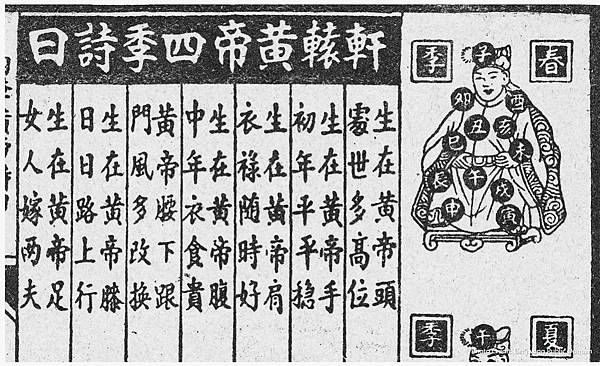 春季
子
酉卯
亥丑
未巳
午
戌辰
寅申
夏季
午
軒轅黃帝四季詩曰
生在黃帝頭
處世多高位
生在黃帝手
初年平平穩
生在黃帝肩
衣祿随時好
生在黃帝腹
中年衣食貴
黃帝腰下跟
門風多改換
生在黃帝膝
日日路上行
生在黃帝足
女人嫁兩夫